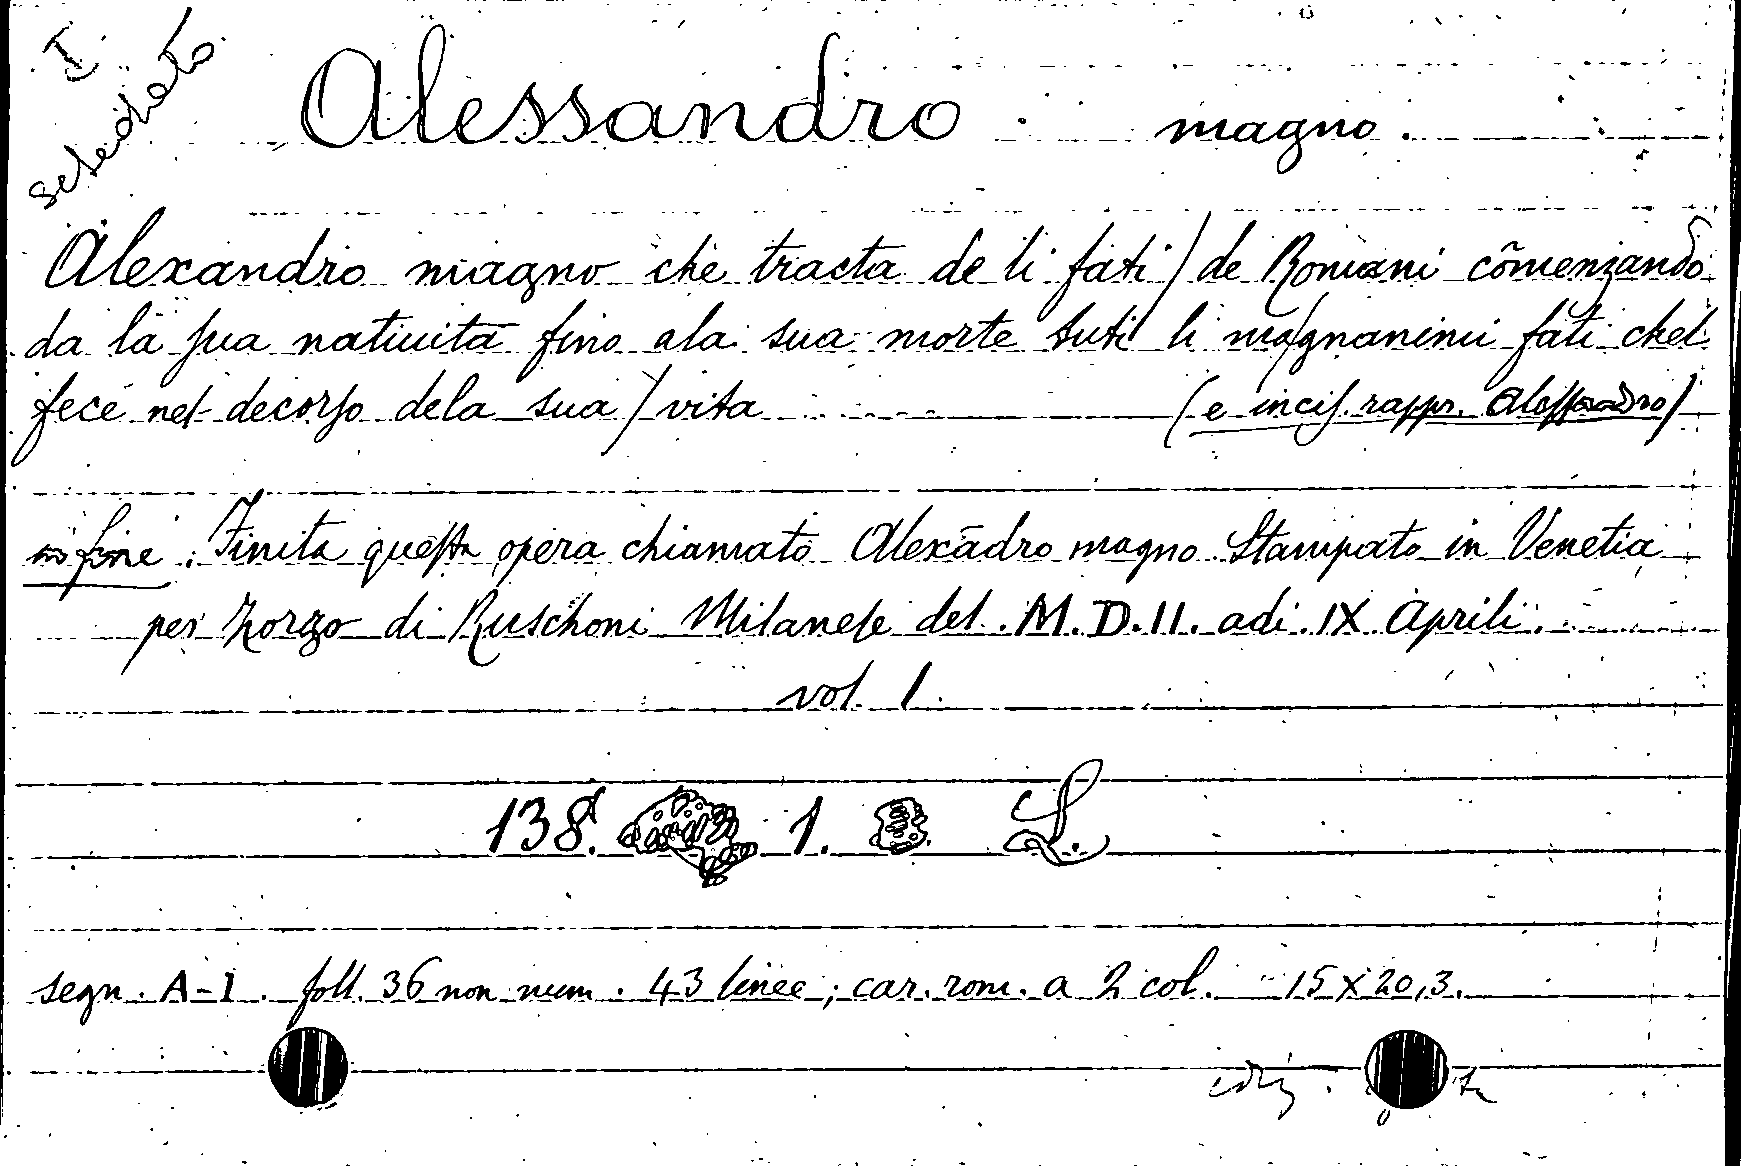 I
schedato
Alessandro magno.
Alexandro magno che tracta de li fati / de Romani cõmenzando
da la sua natiuita fino ala sua morte tuti li ma/gnanimi fati chel
fece nel decorso dela sua / vita (e incis. rappr. Alessandro)
in fine: Finita questa opera chiamato Alexãdro magno Stampato in Venetia
per Zorzo di Ruschoni Milanese del .M.D.II. adi .IX Aprili.
vol. 1.
138. 1. L.
segn. A-I. foll. 36 non num. 43 linee; car. rom. a 2 col. 15 x 20,3.
ediz.